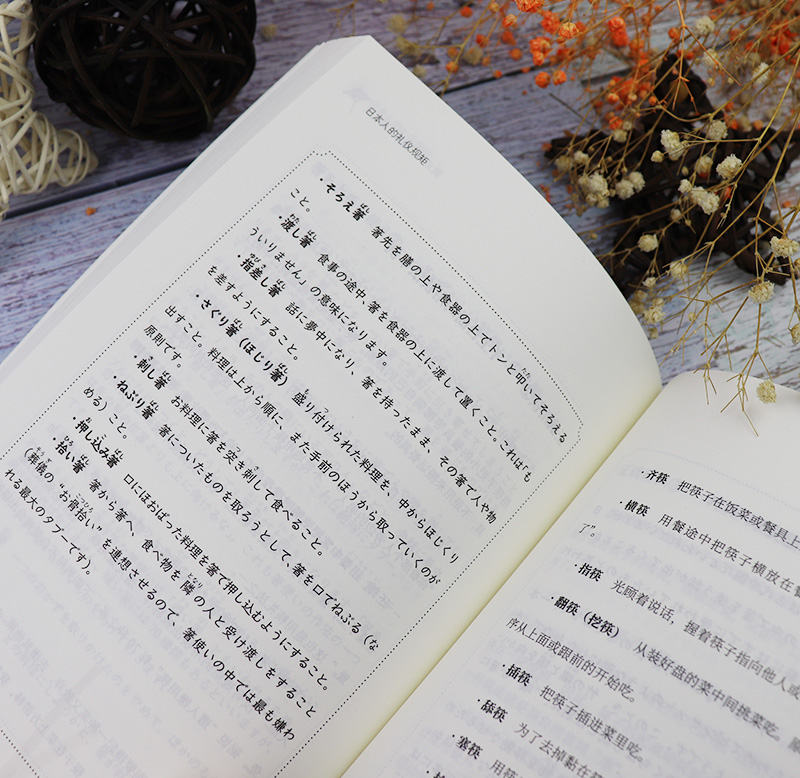 日本人的礼仪规矩
・そろえ箸 箸先を膳の上や食器の上でトンと叩いてそろえる
こと。
・渡し箸 食事の途中、箸を食器の上に渡して置くこと。これは「も
ういりません」の意味になります。
・指差し箸 話に夢中になり、箸を持ったまま、その箸で人や物
を差すようにすること。
・さぐり箸(ほじり箸) 盛り付けられた料理を、中からほじくり
出すこと。料理は上から順に、また手前のほうから取っていくのが
原則です。
・刺し箸 お料理に箸を突き刺して食べること。
・ねぶり箸 箸についたものを取ろうとして、箸を口でねぶる(な
める)こと。
・押し込み箸 口にほおばった料理を箸で押し込むようにすること。
・拾い箸 箸から箸へ、食べ物を隣の人と受け渡しをすること
(葬儀の“お骨拾い”を連想させるので、箸使いの中では最も嫌わ
れる最大のタブーです)。
・齐筷 把筷子在饭菜或餐具上
・横筷 用餐途中把筷子横放在餐
了”。
・指筷 光顾着说话，握着筷子指向他人或
・翻筷（挖筷） 从装好盘的菜中间挑菜吃。
序从上面或跟前的开始吃。
・插筷 把筷子插进菜里吃。
・舔筷 为了去掉黏在
・塞筷 用筷